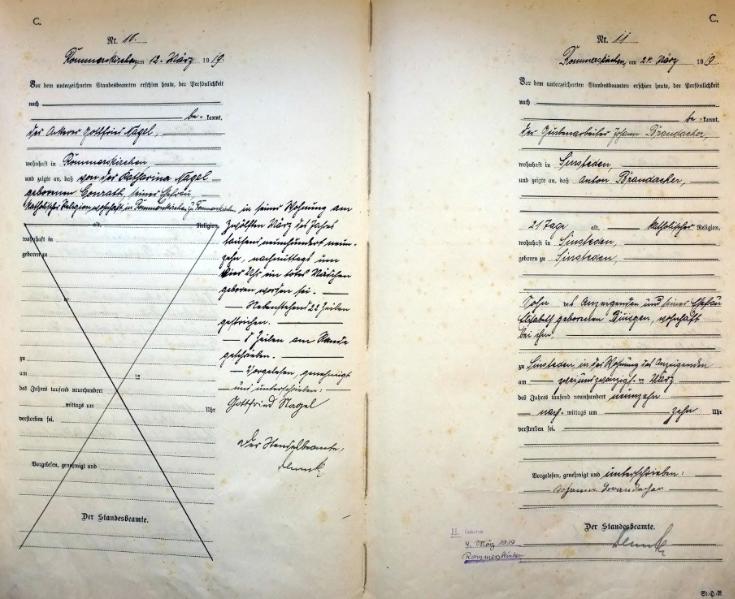 C.
Nr. 10.
Rommerskirchen, am 12. März 1919
Vor dem unterzeichneten Standesbeamten erschien heute, der Persönlichkeit
nach
be - kannt,
der Ackerer Gottfried Nagel,
wohnhaft in Rommerskirchen
und zeigte an, daß von der Katharina Nagel
geborenen Conrath, seiner Ehefrau,
katholischer Religion, wohnhaft in Rommerskirchen
alt, Religion,
wohnhaft in
geboren zu
zu
am
des Jahres tausend neunhundert
mittags um Uhr
verstorben sei.
Vorgelesen, genehmigt und
Der Standesbeamte.
in seiner Wohnung am
zwölften März des Jahres
tausend neunhundert neun-
zehn, nachmittags um
vier Uhr, ein totes Mädchen
geboren worden sei.
— Nebenstehend 22 Zeilen
gestrichen.
— Zeilen am Rande
geschrieben.
— Vorgelesen, genehmigt
und unterschrieben:
Gottfried Nagel
Der Standesbeamte,
C.
Nr. 11
Rommerskirchen, am 24. März 1919
Vor dem unterzeichneten Standesbeamten erschien heute, der Persönlichkeit
nach
be - kannt,
der Johann Brandacher,
wohnhaft in Sinsteden,
und zeigte an, daß Anton Brandacher,
21 Tage alt, katholischer Religion,
wohnhaft in Sinsteden,
geboren zu Sinsteden,
Sohn des Anzeigenden und seiner Ehefrau
Elisabeth geborenen wohnhaft
bei ihm,
zu Sinsteden in der Wohnung des Anzeigenden
am zweiundzwanzigsten März
des Jahres tausend neunhundert neunzehn
nach - mittags um zehn Uhr
verstorben sei.
Vorgelesen, genehmigt und unterschrieben:
Johann Brandacher
Der Standesbeamte.
4. März 1919
Rommerskirchen